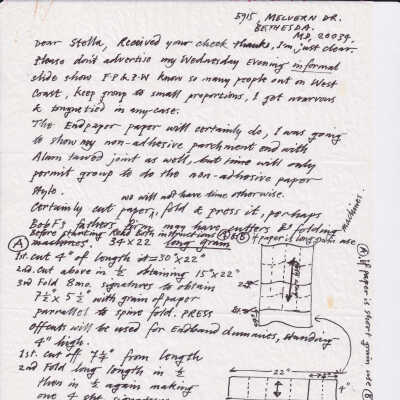 5915 MELVERN DR.
BETHESDA.
MD, 20034.
Dear Stella, Received your check thanks, I'm just clear.
Please don't advertise my Wednesday Evening informal
slide show F.P.&B.W know so many people out on West
Coast, keep group to small proportions, I get nearvous
& tongue tied in any case.
The Endpaper paper will certainly do, I was going
to show my non-adhesive parchment end with
Alum tawed joint as well, but time will only
permit group to do the non-adhesive paper
style.
we will not have time otherwise.
Certainly cut paper, fold & press it, perhaps
Bob F's fathers firm may have cutters & folding
machines.
Before starting Read both instructions A & B
if paper is long grain use
A 34 x 22 long grain
1st. cut 4" of length it = 30" x 22"
2nd. cut above in ½ obtaining 15" x 22"
3rd Fold 8mo, signatures to obtain
7½ x 5½" with grain of paper
parrallel to spine fold. PRESS
offcuts will be used for Endband dummies, standing
4" high.
1st. cut off 7¼" from length
2nd Fold long length in ½
then in ½ again making
one 4 sht signature
A, if paper is short grain use B
22"
4"